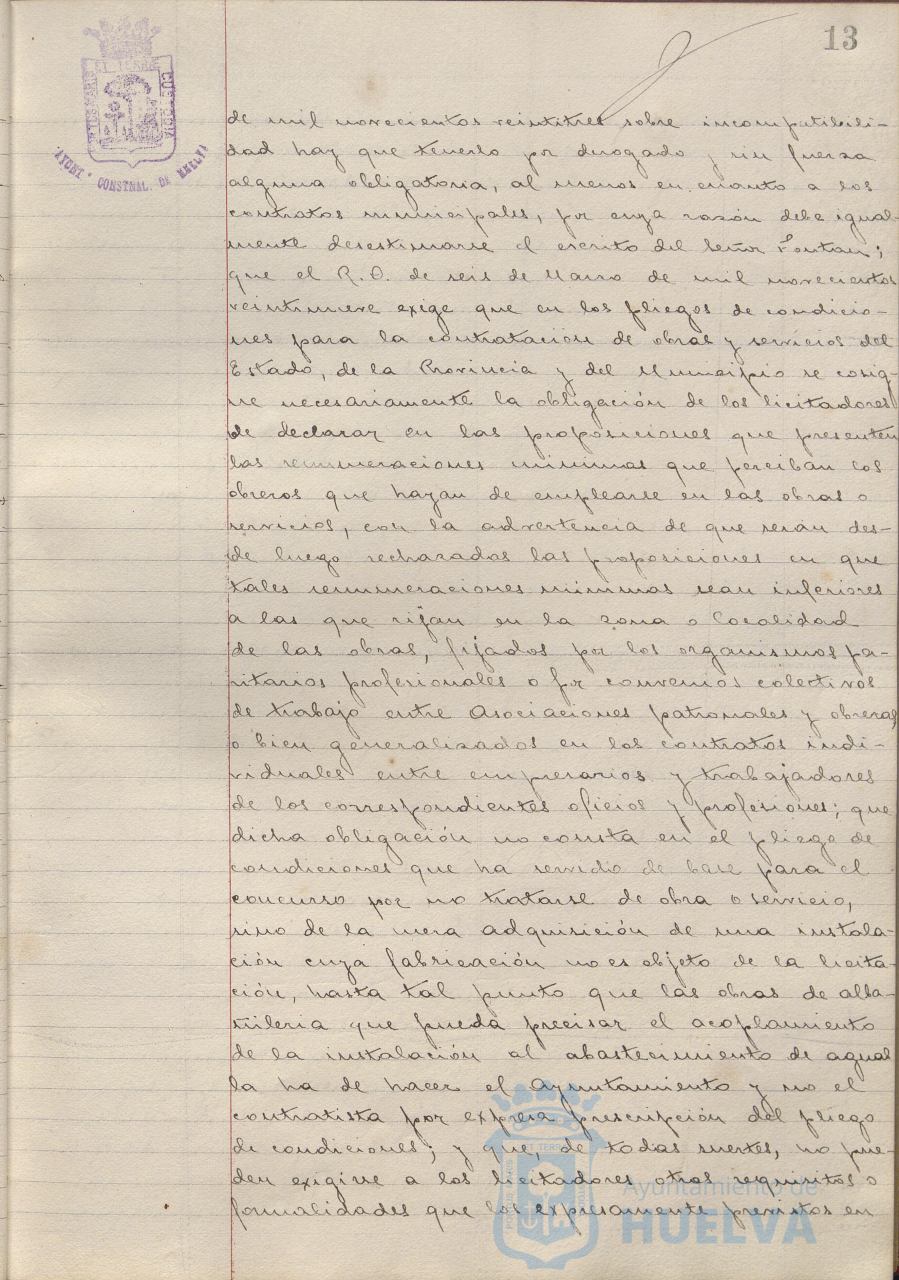 13
PORTUS MARIS ET TERRÆ CUSTODIA
AYUNT. CONSTNAL. DE HUELVA
de mil novecientos veintitres sobre incompatibili-
dad hay que tenerlo por derogado y sin fuerza
alguna obligatoria, al menos en cuanto a los
contratos municipales, por cuya razón debe igual-
mente desestimarse el escrito del Señor Fontan;
que el R.O. de seis de Marzo de mil novecientos
veintinueve exige que en los pliegos de condicio-
nes para la contratación de obras y servicios del
Estado, de la Provincia y del Municipio se cosig-
ne necesariamente la obligación de los licitadores
de declarar en las proposiciones que presenten
las remuneraciones minimas que perciban los
obreros que hayan de emplearse en las obras o
servicios, con la advertencia de que serán des-
de luego rechazadas las proposiciones en que
tales remuneraciones minimas sean inferiores
a las que rijan en la zona o localidad
de las obras, fijados por los organismos pa-
ritarios profesionales o por convenios colectivos
de trabajo entre Asociaciones patronales y obreras
o bien generalizados en los contratos indi-
viduales entre empresarios y trabajadores
de los correspondientes oficios y profesiones; que
dicha obligación no consta en el pliego de
condiciones que ha servido de base para el
concurso por no tratarse de obra o servicio,
sino de la mera adquisición de una instala-
ción cuya fabricación no es objeto de la licita-
ción, hasta tal punto que las obras de alba-
ñileria que pueda precisar el acoplamiento
de la instalación al abastecimiento de aguas
la ha de hacer el Ayuntamiento y no el
contratista por expresa prescripción del pliego
de condiciones; y que, de todas suertes, no pue-
den exigirse a los licitadores otros requisitos o
formalidades que los expresamente previstos en
Ayuntamiento de
HUELVA